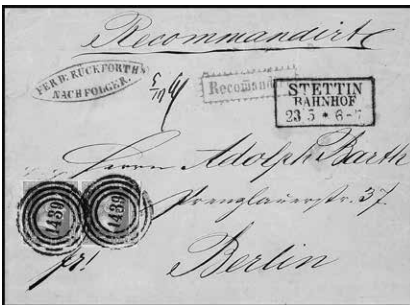 Recommandirt
FERD. RÜCKFORTH'S
NACHFOLGER.
Recomandirt
STETTIN
BAHNHOF
23 5 * 6-7
Herrn Adolph Barth
Prenzlauerstr. 37.
1439
1439
fr!
Berlin